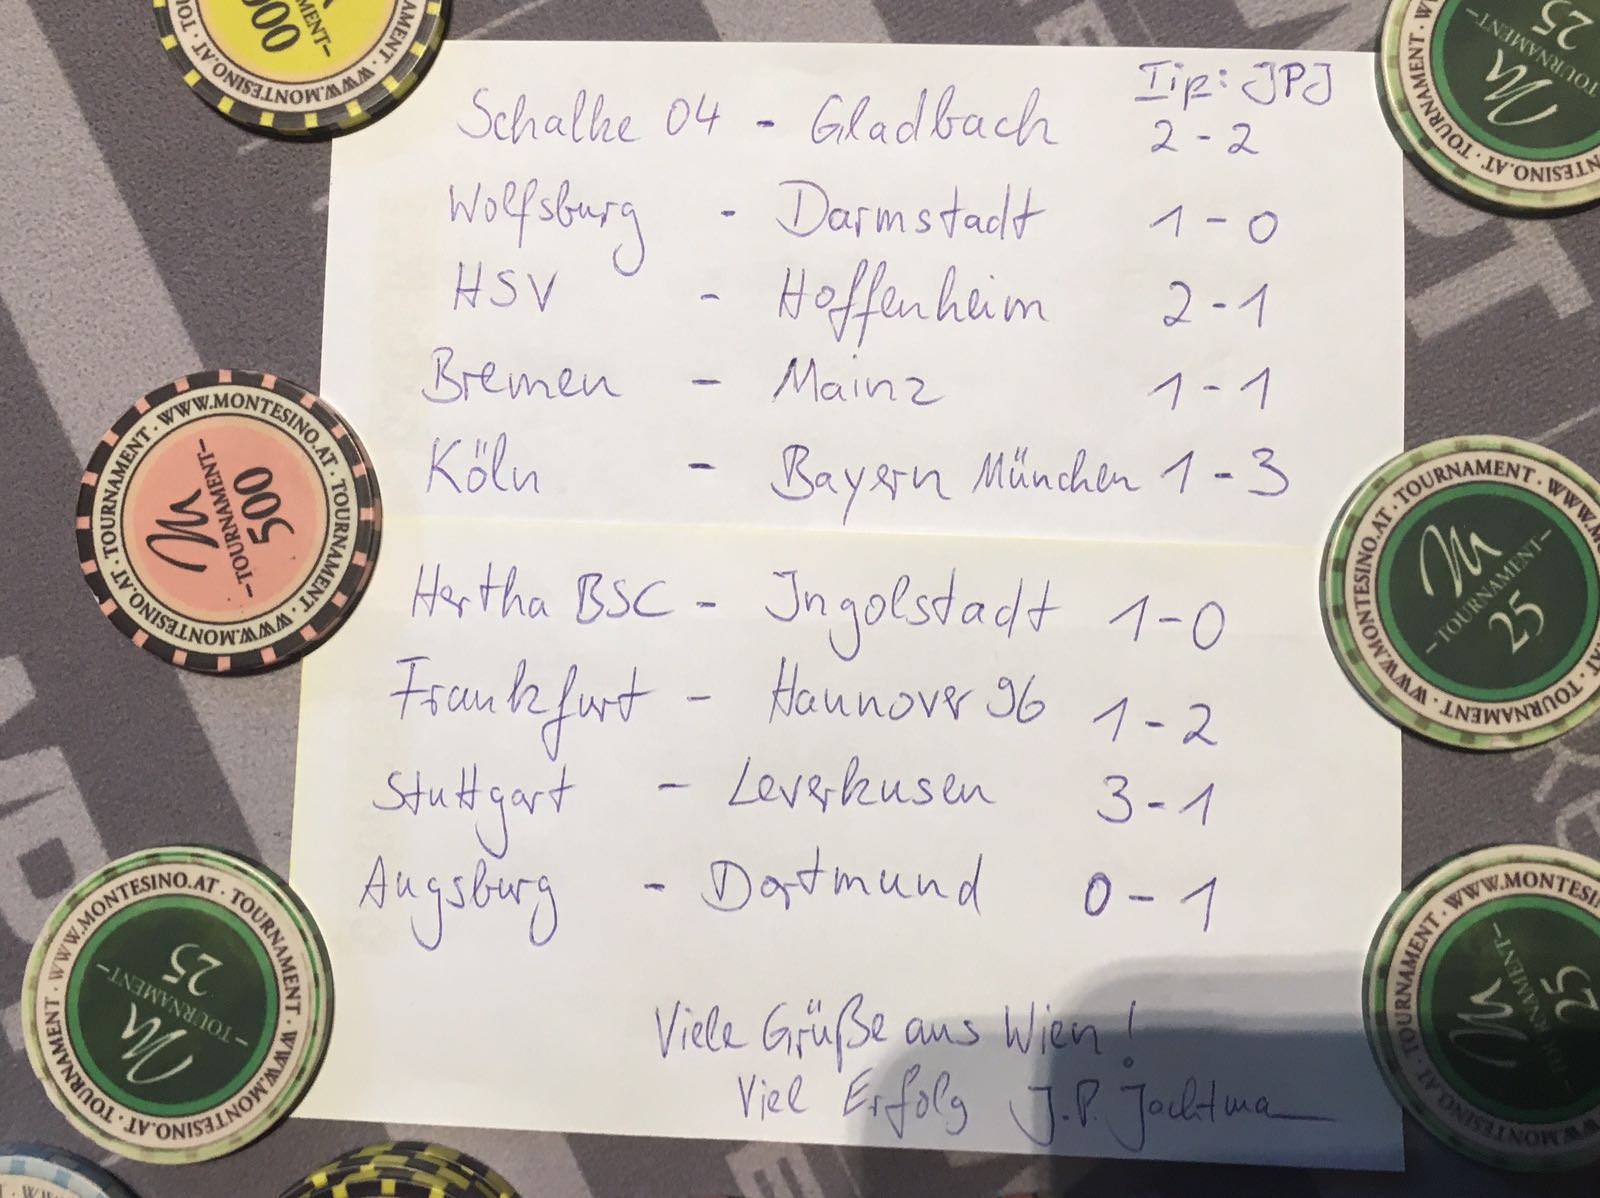 Tip: JPJ
Schalke 04 - Gladbach 2 - 2
Wolfsburg - Darmstadt 1 - 0
HSV - Hoffenheim 2 - 1
Bremen - Mainz 1 - 1
Köln - Bayern München 1 - 3
Hertha BSC - Ingolstadt 1 - 0
Frankfurt - Hannover 96 1 - 2
Stuttgart - Leverkusen 3 - 1
Augsburg - Dortmund 0 - 1
Viele Grüße aus Wien!
Viel Erfolg J.P. Jachtma
000
TOURNAMENT · WWW.MONTESINO.AT
TOURNAMENT
25
TOURNAMENT · WWW.MONTESINO.AT · TOURNAMENT · WWW.MONTESINO.AT
M
TOURNAMENT
500
TOURNAMENT · WWW.MONTESINO.AT
M
TOURNAMENT
25
TOURNAMENT · WWW.MONTESINO.AT · TOURNAMENT · WWW.MONTESINO.AT
M
TOURNAMENT
25
TOURNAMENT · WWW.MONTESINO.AT
M
TOURNAMENT
25